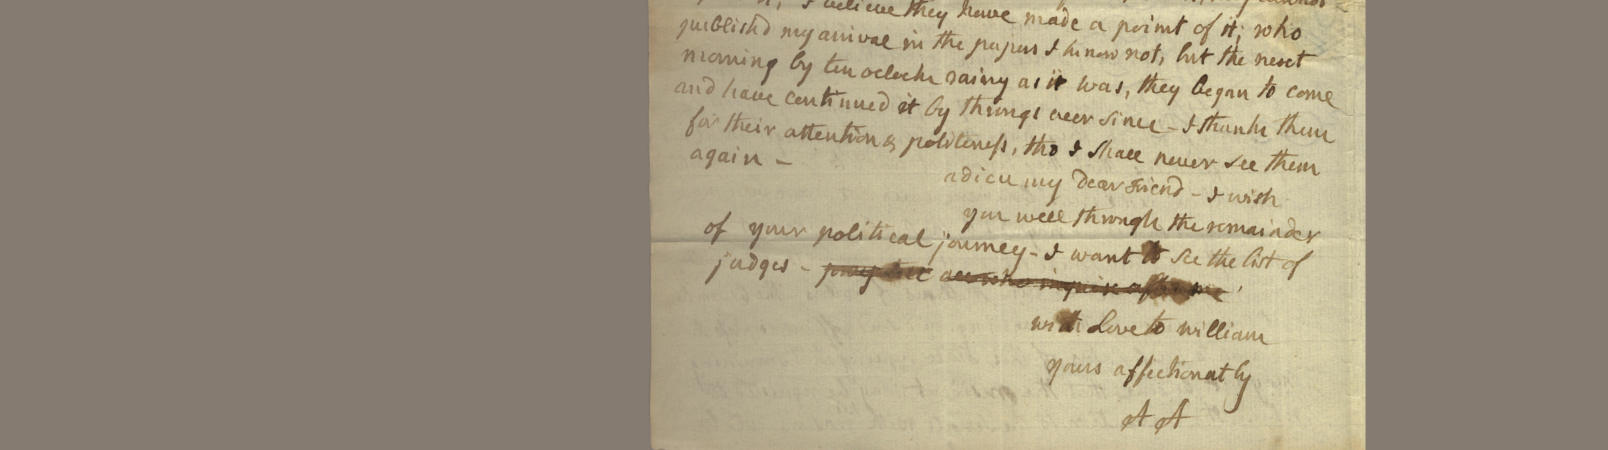 I believe they have made a point of it; who
publishd my arrival in the papers I know not, but the next
morning by ten oclock rainy as it was, they began to come
and have continued it by throngs ever since - I thank them
for their attention & politeness, tho I shall never see them
again -
adieu my Dear Friend - I wish
you well through the remainder
of your political journey - I want to see the list of
judges -
with Love to william
yours affectionatly
A A